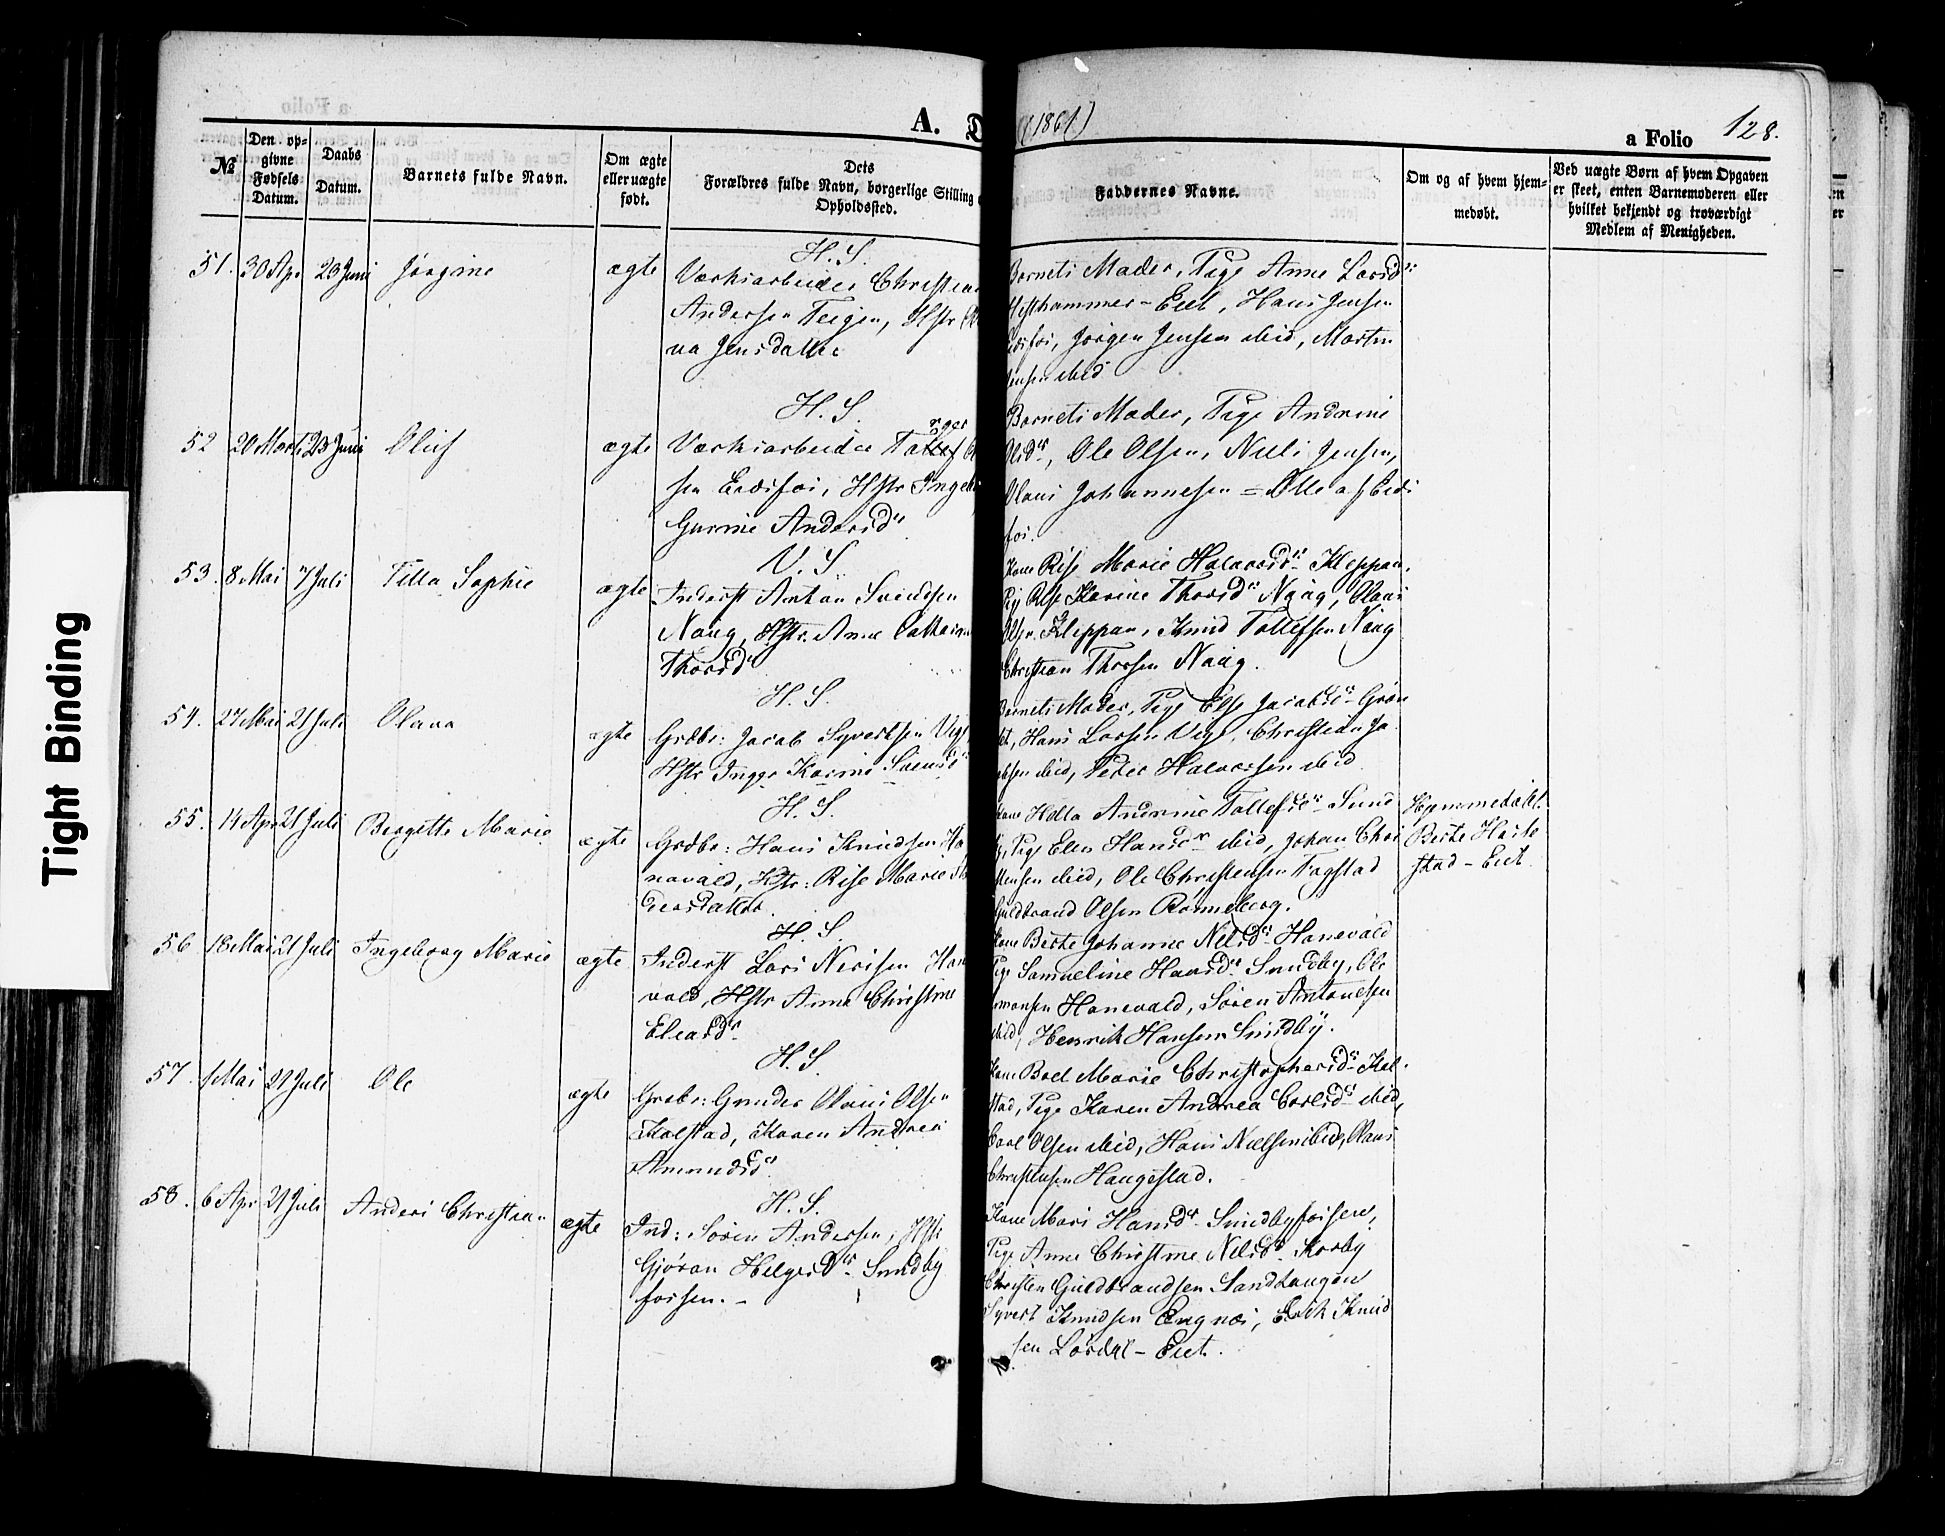 Tight Binding
A. D
(1861)
a Folio
128.
№
Den op-
givne
Fødsels
Datum.
Daabs
Datum.
Barnets fulde Navn.
Om ægte
eller uægte
født.
Dets
Forældres fulde Navn, borgerlige Stilling
Opholdssted.
Faddernes Navne.
Om og af hvem hjem-
medøbt.
Ved uægte Børn af hvem Opgaven
er skeet, enten Barnemoderen eller
hvilket bekjendt og troværdigt
Medlem af Menigheden.
51. 30 Apr 23 Juni Jørgine ægte
H. S.
Værksarbeider Christian
Andersen Teigen, Hstr
va Jensdatter
Barnets Moder, Pige Anne Larsdr
Hesthammer-Eiet, Hans Jensen
Jørgen Jensen ibid, Morten
Jensen ibid
52 20 Marts 23 Juni Oluf ægte
H. S.
Værksarbeider
sen Eidsfos, Hstr Ingeb
Gurine Andersdr
Barnets Moder, Pige Andrine
Olsdr, Ole Olsen, Niels Jensen,
Olaus Johannesen = Alle af Eids
fos.
53. 8 Mai 7 Juli Tilla Sophie ægte
V. S
Inderst Anton Svendsen
Naug, Hstr. Anne Cathrine
Thorsdr
Kone Rise Marie Halvorsdr Kleppan,
Pige Karine Thorsdr Naug, Olaus
Olsen Kleppan, Knud Tollefsen Naug
Christian Thorsen Naug.
54. 27 Mai 21 Juli Olava ægte
H. S.
Grdbr: Jacob Syvertsen
Hstr Inger Karine Svendsdr
Barnets Moder, Pige Else Jacobsdr Grøn
Hans Larsen Christian Ja
cobsen ibid, Peder Halvorsen ibid
55. 14 Apr 21 Juli Bergette Marie ægte
H. S.
Grdbr: Hans Knudsen Ha
nevald, Hstr: Rise Marie
dersdatter.
Kone Helta Andrine Tollefsdr Sund
by, Pige Elen Hansdr ibid, Johan Chri
stensen ibid, Ole Christensen Fagstad
Guldbrand Olsen Ranneberg.
Hjemmedøbt
Berte Harte
stad-Eiet
56 18 Mai 21 Juli Ingeborg Marie ægte
H. S
Inderst Lars Hane
vald, Hstr Anne Christine
Eleasdr
Kone Berte Johanne Nilsdr Hanevald
Pige Samueline Hansdr Sundby, Ole
Hanevald, Søren Antonsen
ibid, Henrik Hansen Sundby.
57. 1 Mai 21 Juli Ole ægte
H. S.
Grdbr: Gunder Olaus Olsen
Kolstad, Karen Andrea
Amundsdr
Kone Boel Marie Christophersdr Kol
stad, Pige Karen Andrea Carlsdr ibid,
Carl Olsen ibid, Hans Nielsen ibid, Olaus
Christensen Haugestad.
58. 6 Apr 21 Juli Anders Christian ægte
H. S.
Ind: Søren Andersen, Hstr
Gjøran Helgesdr Sundby
fossen. -
Kone Mari Hansdr Sundbyfossen,
Pige Anne Christine Nilsdr Korby
Christen Guldbrandsen Sandhaugen
Syvert Knudsen Engnæs, Erik Knud
sen Lørdal-Eiet.